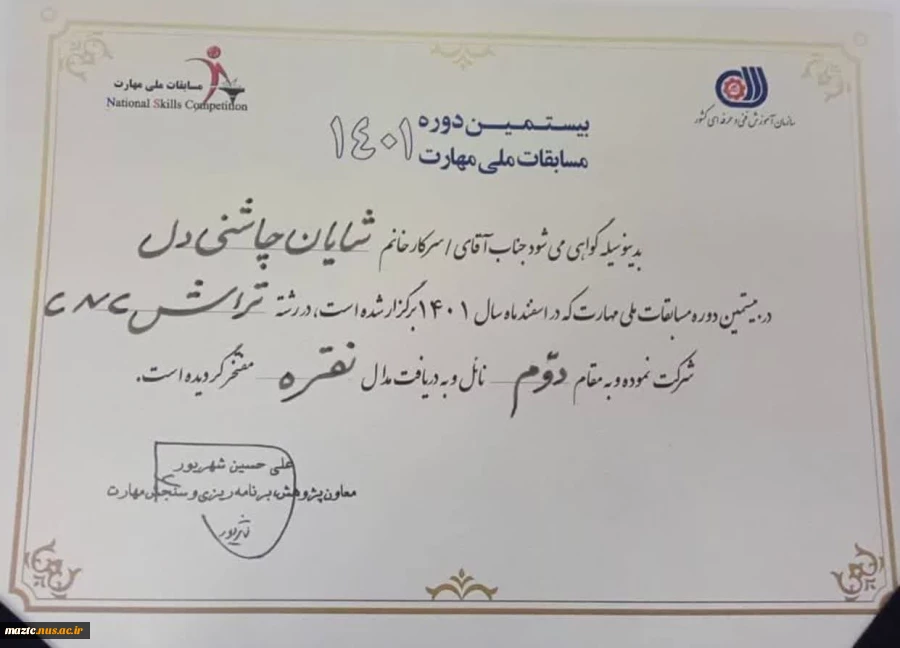 مسابقات ملی مهارت
National Skills Competition
سازمان آموزش فنی و حرفه ای کشور
بیستمین دوره
مسابقات ملی مهارت
۱۴۰۱
بدینوسیله گواهی می شود جناب آقای / سرکار خانم شایان چاشنی دل
در بیستمین دوره مسابقات ملی مهارت که در اسفند ماه سال ۱۴۰۱ برگزار شده است، در رشته تراش CNC
شرکت نموده و به مقام دوّم نائل و به دریافت مدال نقره مفتخر گردیده است.
علی حسین شهریور
معاون پژوهش، برنامه ریزی و سنجش مهارت
maztc.nus.ac.ir